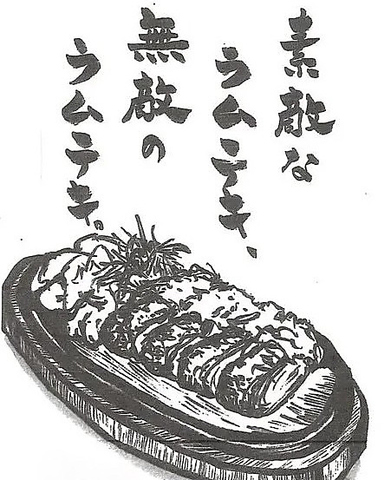 素敵な
ラムテキ、
無敵の
ラムテキ。